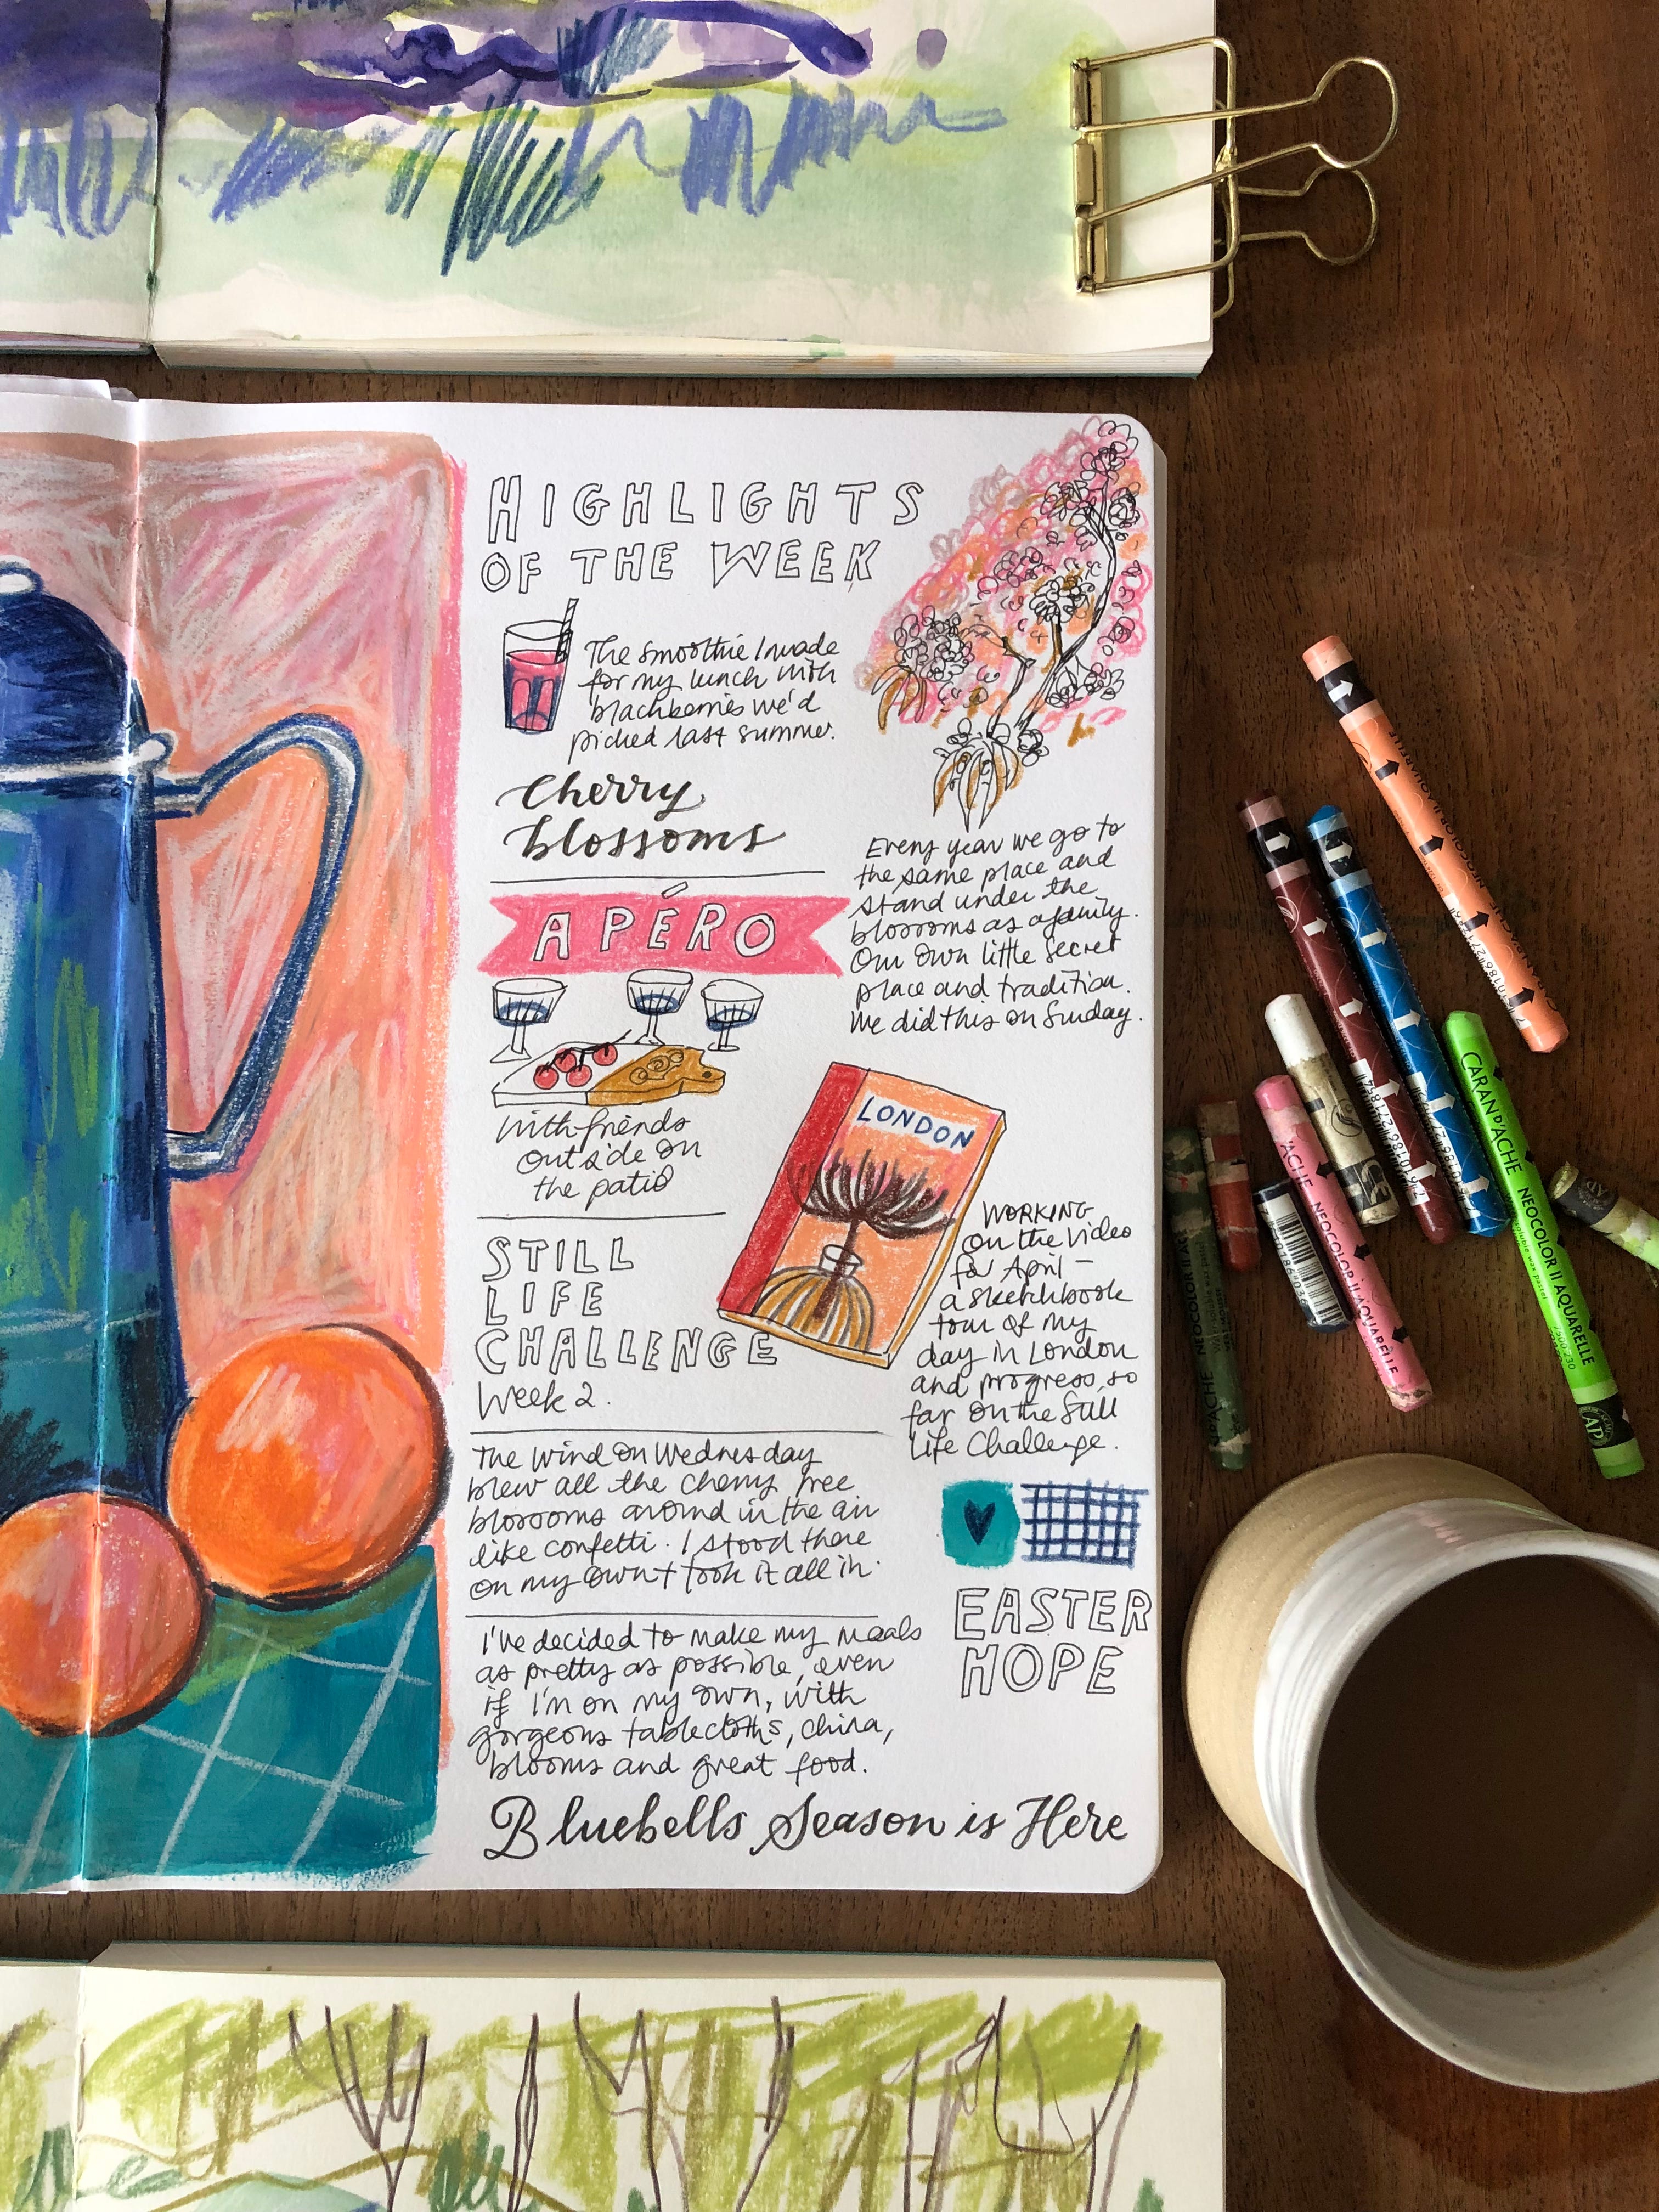 HIGHLIGHTS
OF THE WEEK
The smoothie I made
for my lunch with
blackberries we'd
picked last summer.
Cherry
blossoms
Every year we go to
the same place and
stand under the
blossoms as a family.
Our own little secret
place and tradition.
We did this on Sunday.
APÉRO
with friends
outside on
the patio
LONDON
WORKING
on the video
for April –
a sketchbook
tour of my
day in London
and progress so
far on the Still
Life Challenge.
STILL
LIFE
CHALLENGE
Week 2.
The wind on Wednesday
blew all the cherry tree
blossoms around in the air
like confetti. I stood there
on my own + took it all in.
EASTER
HOPE
I've decided to make my meals
as pretty as possible, even
if I'm on my own, with
gorgeous tablecloths, china,
blooms and great food.
Bluebells Season is Here
CARAN D'ACHE NEOCOLOR II AQUARELLE
ACHE NEOCOLOR II AQUARELLE
D'ACHE NEOCOLOR II